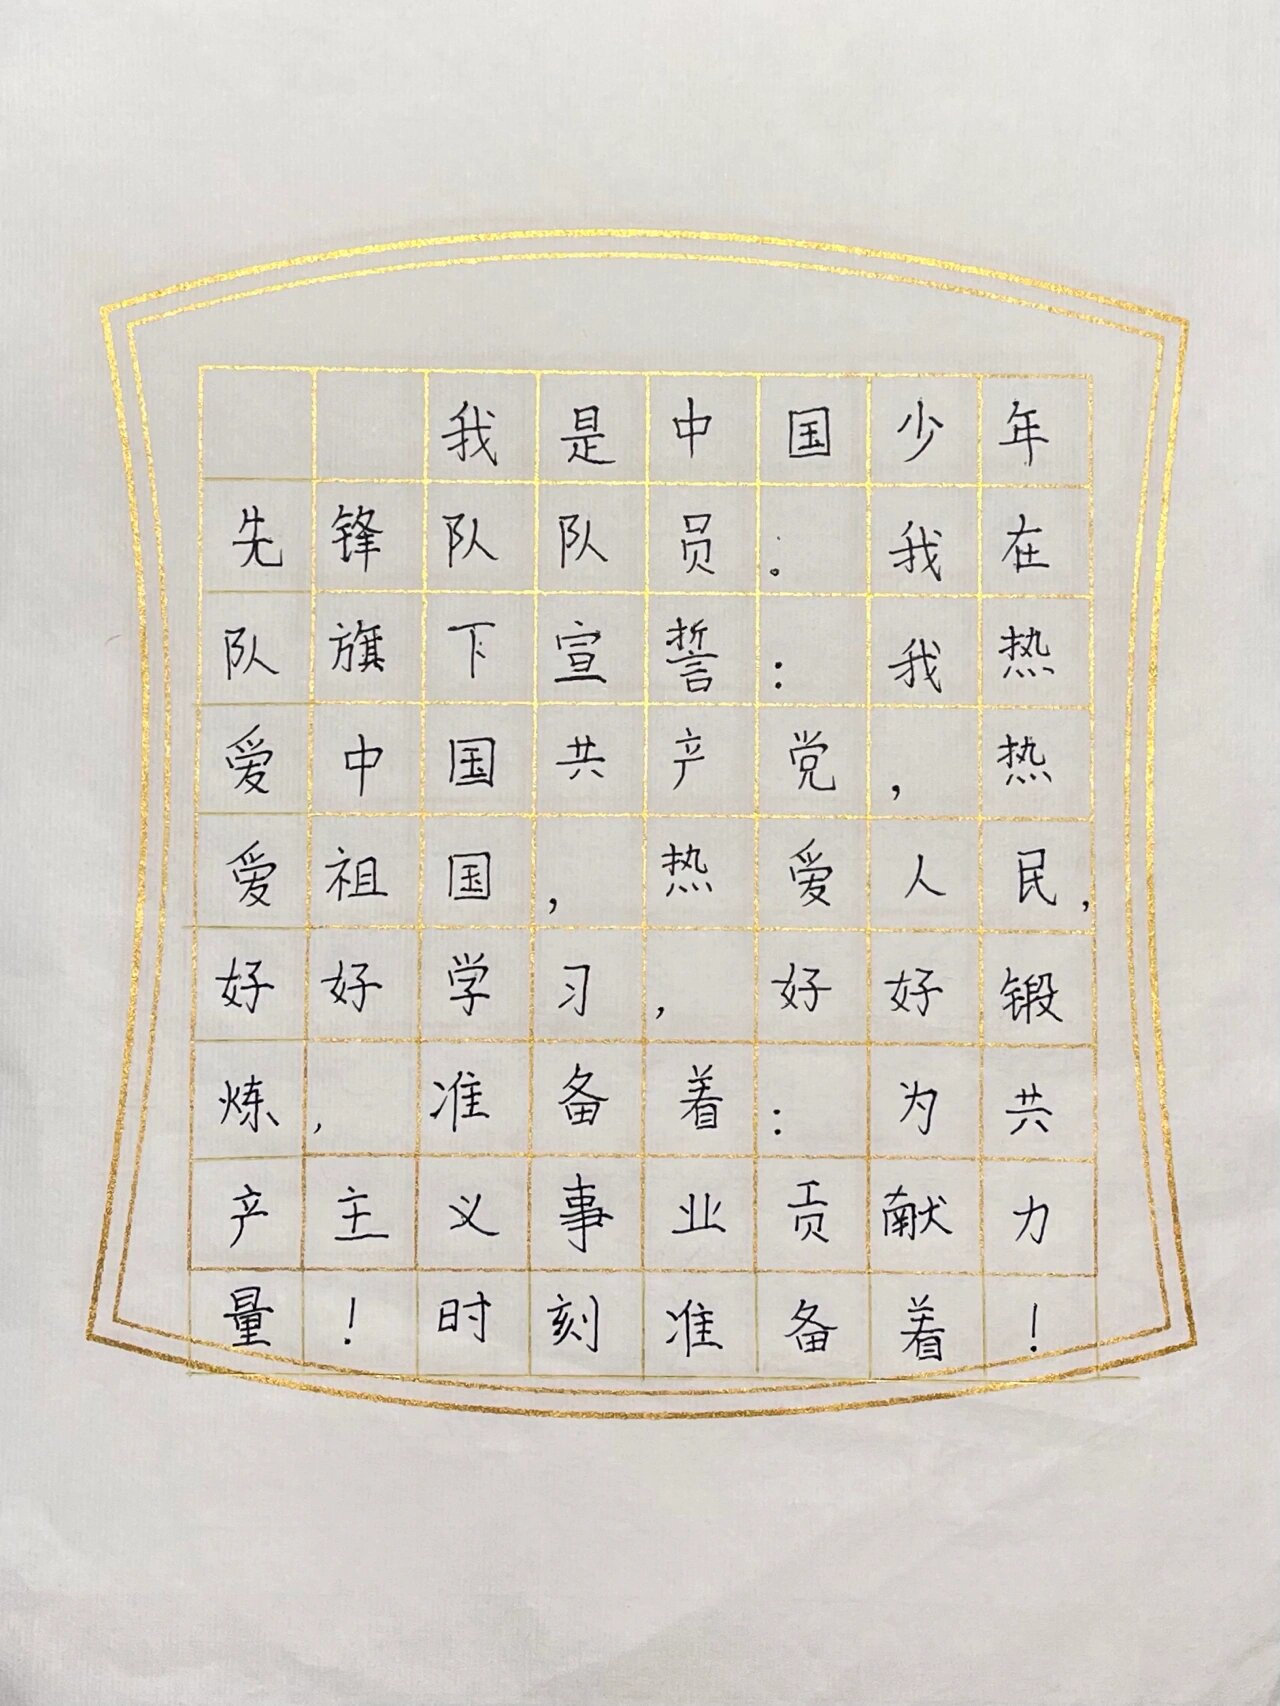 我是中国少年
先锋队队员。我在
队旗下宣誓：我热
爱中国共产党，热
爱祖国，热爱人民，
好好学习，好好锻
炼，准备着：为共
产主义事业贡献力
量！时刻准备着！